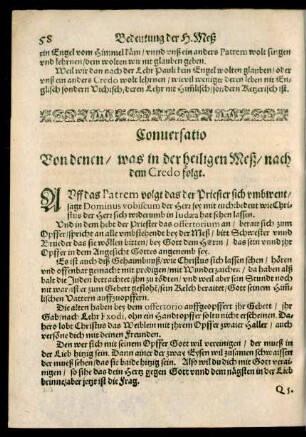 58 Bedeutung der H. Meß
ein Engel vom Himmel käm/ vnnd vnß ein anders Patrem wolt singen
vnd lehrnen/ dem wolten wir nit glauben geben.
Weil wir dan nach der Lehr Pauli kein Engel wolten glauben/ oder
vnß ein anders Credo wolt lehrnen/ wievil weniger deren leben nit En-
glisch sonder Viehisch/ deren Lehr nit Himlisch/ sonder Ketzerisch ist.
Conuersatio
Von denen/ was in der heiligen Meß/ nach
dem Credo folgt.
AVff das Patrem volgt das der Priester sich vmbwent/
sagt Dominus vobiscum der Herr sey mit euch bedeut wie Chri-
stus der Herr sich widerumb in Iudæa hat sehen lassen.
Vnd in dem hebt der Priester das offertorium an/ berait sich zum
Opffer/ spricht an alle vmbstehende bey der Meß/ bitt Schwester vnd
Brueder das sie wöllen bitten/ bey Gott dem Herrn/ das sein vnd ihr
Opffer in dem Angesicht Gottes angenemb sey.
Es ist auch diß Gehaimbnuß/ wie Christus sich lassen sehen/ hören
vnd offenbar gemacht mit predigen mit Wunderzaichen/ da haben alß
balt die Juden betrachtet/ ihn zu tödten/ vnd weil aber sein Stundt noch
nit war ist er zum Gebett geflohē/ sein Kelch beraitet/ Gott seinem Him-
lischen Vattern auffzuopffern.
Die alten haben bey dem offertorio auffgeopffert ihr Gebett/ ihr
Gab/ nach Lehr Exodi, ohn ein Handtopffer solt u nicht erscheinen. Da-
hero lobt Christus das Weiblein mit ihrem Opffer zwaier Haller/ auch
versöne dich mit deinen Freunden.
Den wer sich mit seinem Opffer Gott wil vereinigen/ der muß in
der Lieb hitzig sein. Dann ainer der zway Eysen wil zusamen schwaissen
der muß sehen/ das sie baide hitzig sein. Also wil du dich mit Gott verai-
nigen/ so sihe das dein Hertz gegen Gott vnnd dem nägsten in der Lieb
brinne/ aber jetzt ist die Frag.
Q 5.